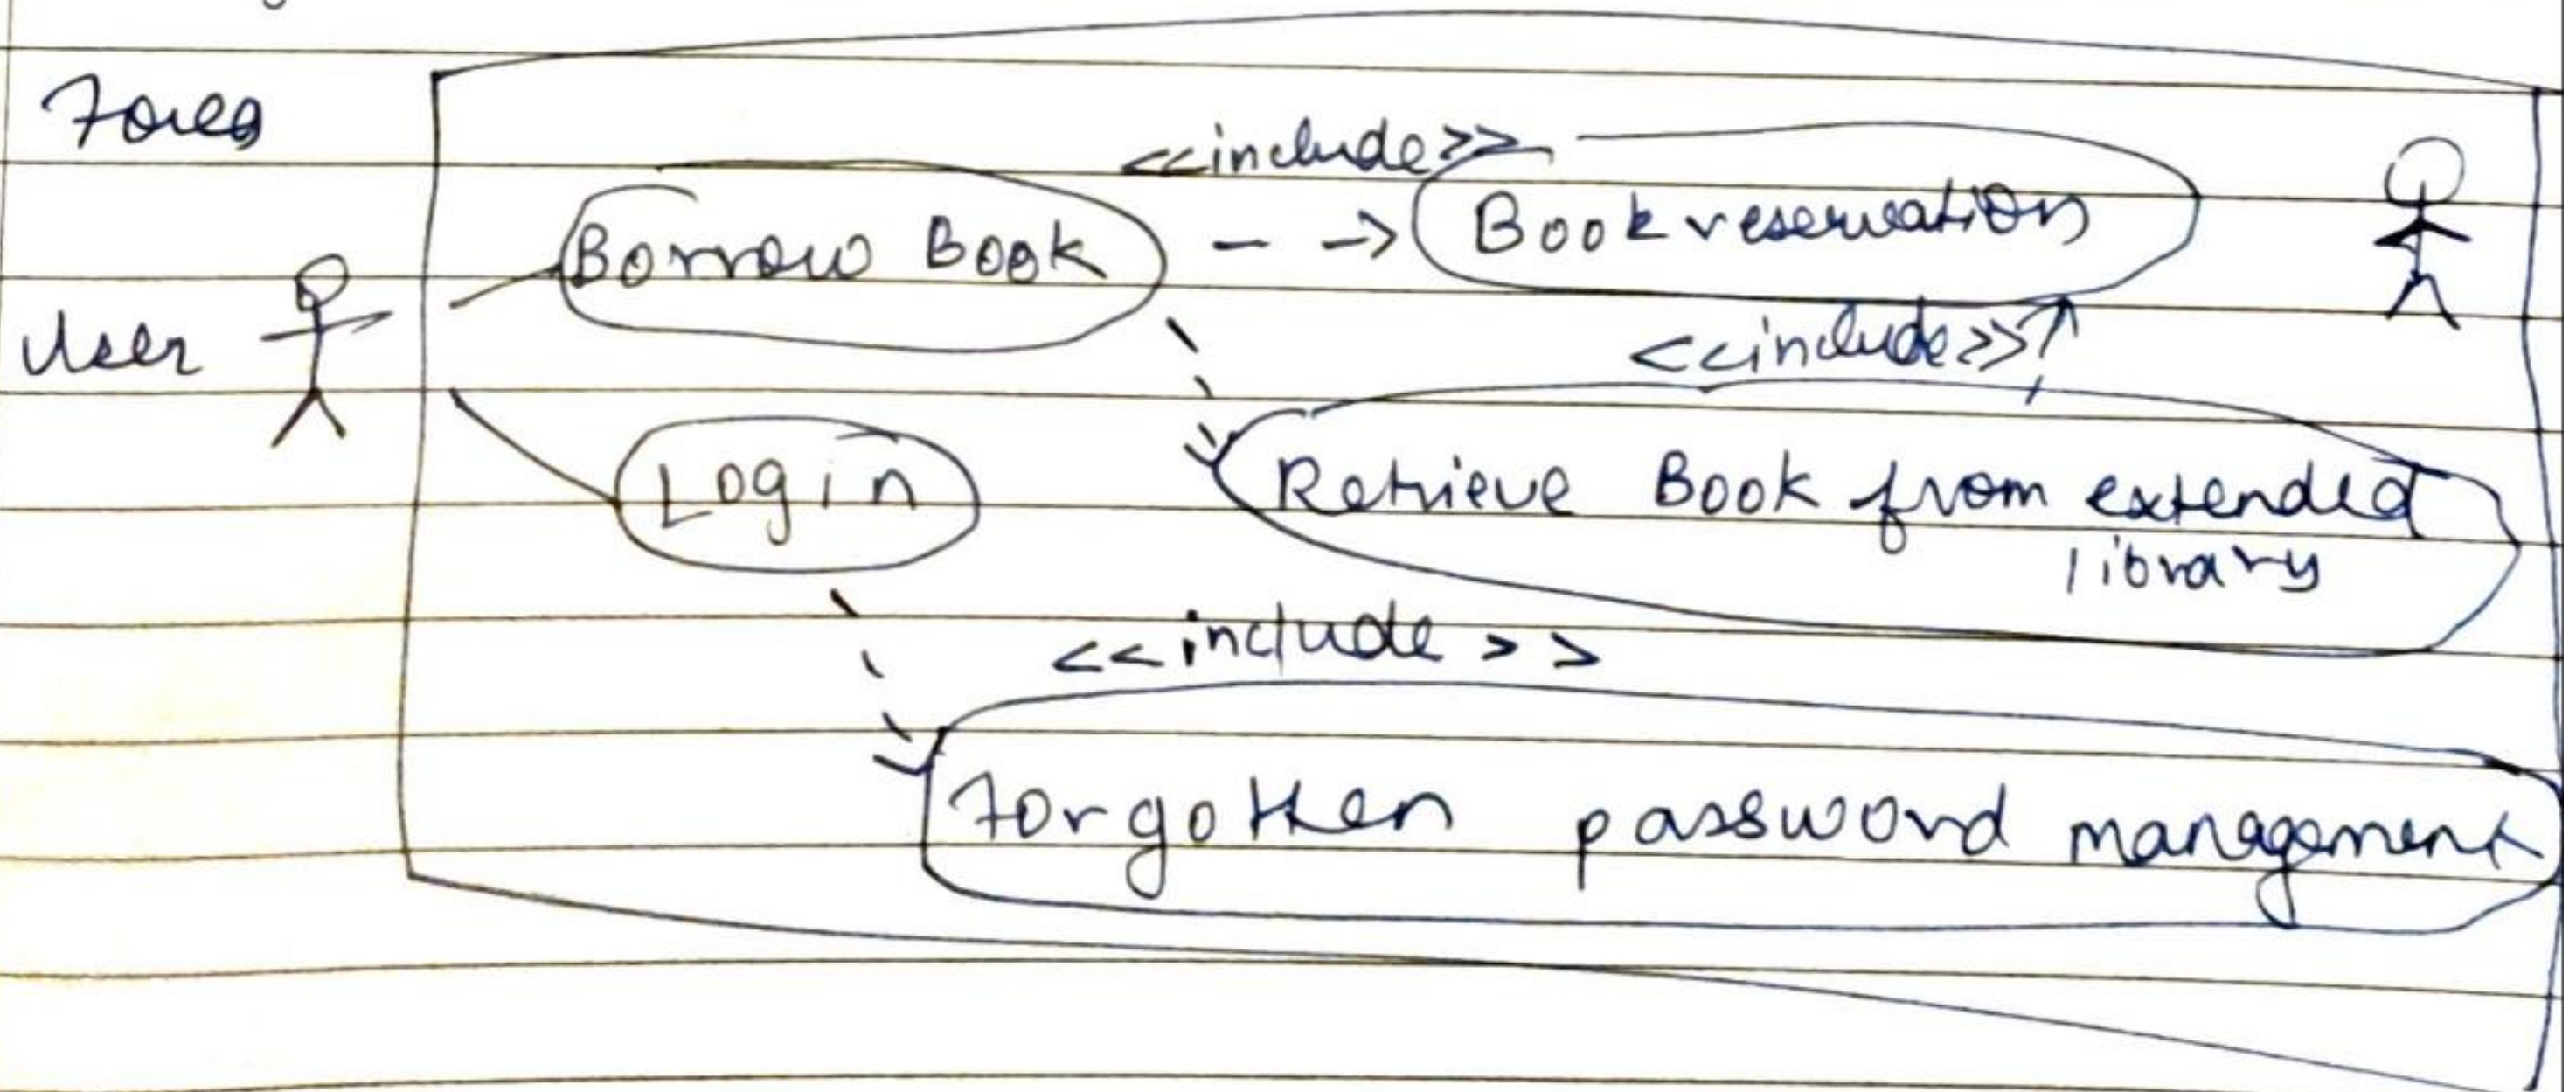 <<include>>
Borrow Book
Book reservation
User
<<include>>
Login
Retrieve Book from extended
library
<<include>>
Forgotten password management